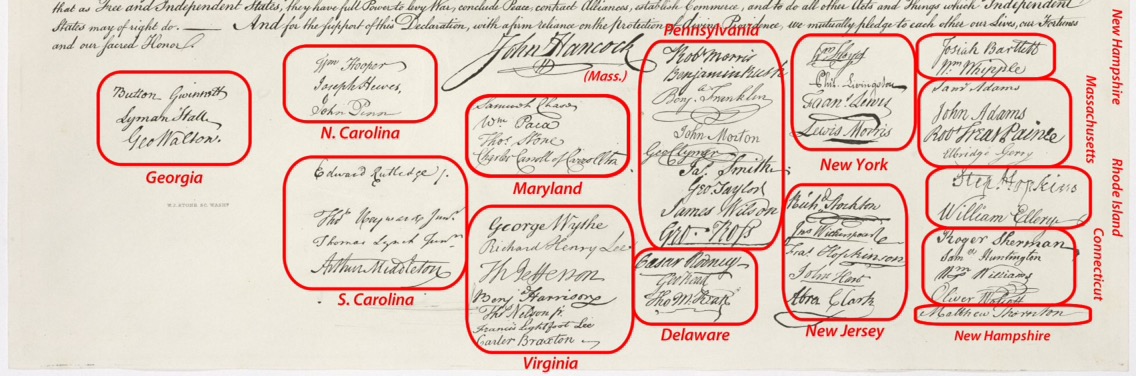 that as Free and Independent States, they have full Power to levy War, conclude Peace, contract Alliances, establish Commerce, and to do all other Acts and Things which Independent
States may of right do. — And for the support of this Declaration, with a firm reliance on the protection of divine Providence, we mutually pledge to each other our Lives, our Fortunes
and our sacred Honor.
Button Gwinnett
Lyman Hall
Geo Walton.
Georgia
Wm Hooper
Joseph Hewes,
John Penn
N. Carolina
Edward Rutledge /.
Thos Heyward Junr.
Thomas Lynch Junr.
Arthur Middleton
S. Carolina
W. J. STONE SC. WASHN
John Hancock
(Mass.)
Samuel Chase
Wm Paca
Thos Stone
Charles Carroll of Carrollton
Maryland
George Wythe
Richard Henry Lee
Th Jefferson
Benj Harrison
Thos Nelson jr.
Francis Lightfoot Lee
Carter Braxton
Virginia
Pennsylvania
Robt Morris
Benjamin Rush
Benj. Franklin
John Morton
Geo Clymer
Jas. Smith
Geo. Taylor
James Wilson
Geo. Ross
Caesar Rodney
Geo Read
Tho M:Kean
Delaware
Wm Floyd
Phil. Livingston
Frans. Lewis
Lewis Morris
New York
Richd Stockton
Jno Witherspoon
Fras. Hopkinson
John Hart
Abra Clark
New Jersey
Josiah Bartlett
Wm Whipple
New Hampshire
Saml Adams
John Adams
Robt Treat Paine
Elbridge Gerry
Massachusetts
Step. Hopkins
William Ellery
Rhode Island
Roger Sherman
Saml Huntington
Wm Williams
Oliver Wolcott
Connecticut
Matthew Thornton
New Hampshire